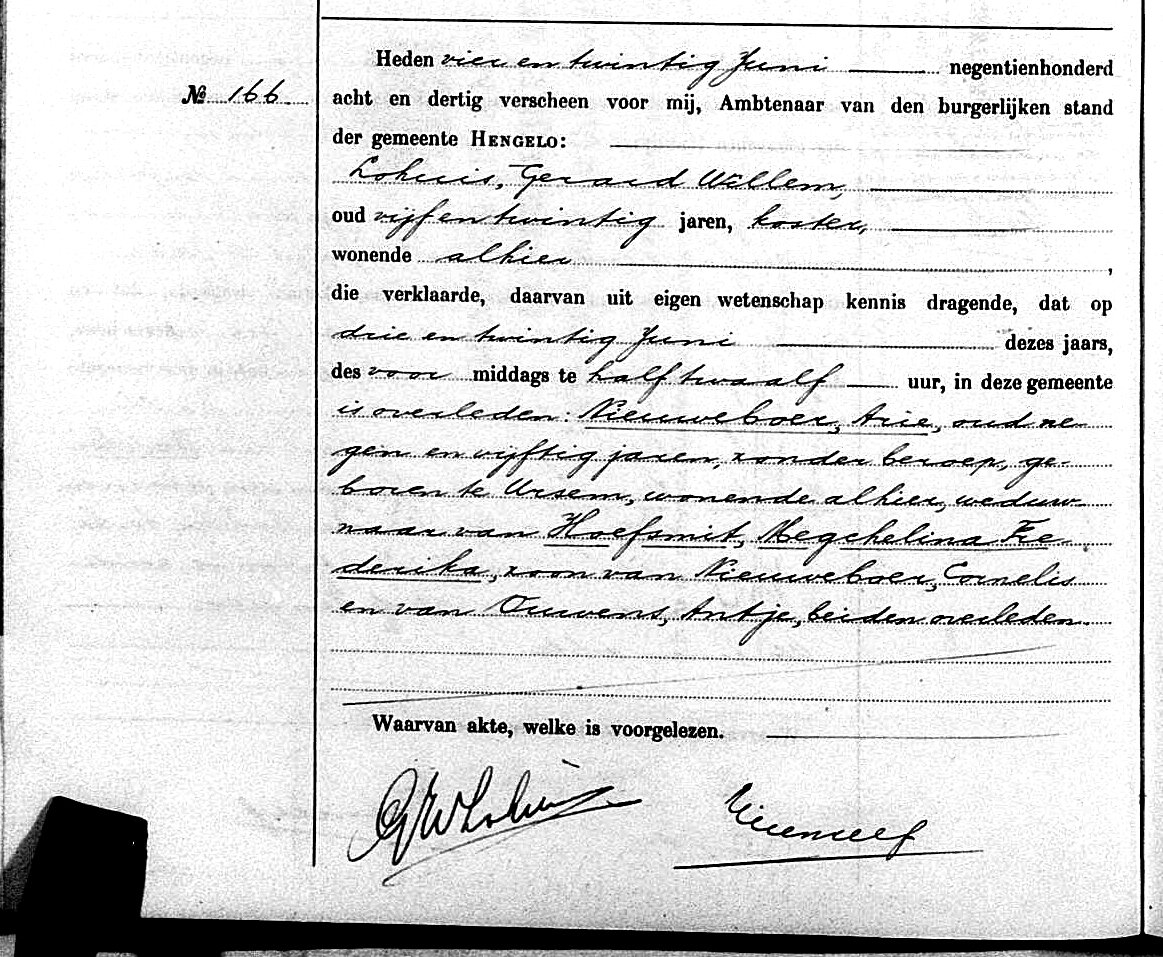 Heden vier en twintig Juni negentienhonderd
№ 166
acht en dertig verscheen voor mij, Ambtenaar van den burgerlijken stand
der gemeente HENGELO:
Lohuis, Gerard Willem,
oud vijf en twintig jaren, koster,
wonende alhier,
die verklaarde, daarvan uit eigen wetenschap kennis dragende, dat op
drie en twintig Juni dezes jaars,
des voor middags te half twaalf uur, in deze gemeente
is overleden: Nieuweboer, Arie, oud ne-
gen en vijftig jaren, zonder beroep, ge-
boren te Ursem, wonende alhier, weduw-
naar van Hoefsmit, Megchelina Fre
derika, zoon van Nieuweboer, Cornelis
en van Ouwens, Antje, beiden overleden.
Waarvan akte, welke is voorgelezen.
GWLohuis